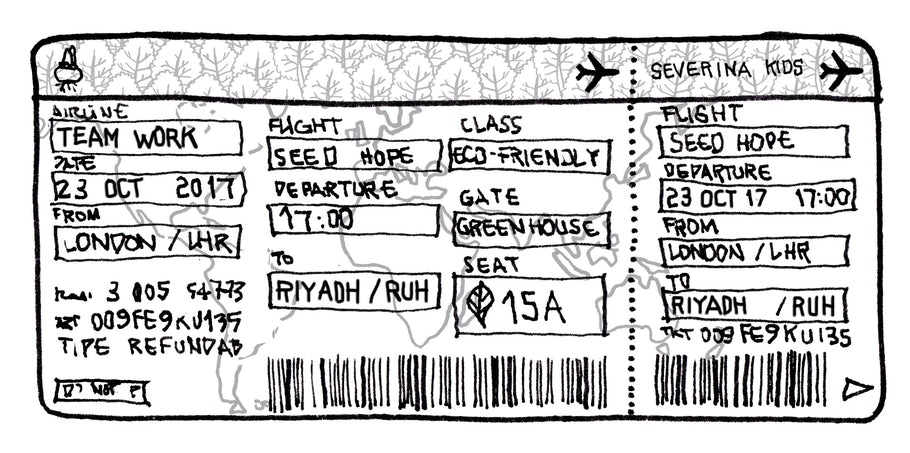 SEVERINA KIDS
AIRLINE
TEAM WORK
DATE
23 OCT 2017
FROM
LONDON / LHR
3 005 54773
TKT 009FE9KU135
TIPE REFUNDAB
FLIGHT
SEED HOPE
DEPARTURE
17:00
TO
RIYADH / RUH
CLASS
ECO-FRIENDLY
GATE
GREENHOUSE
SEAT
15A
FLIGHT
SEED HOPE
DEPARTURE
23 OCT 17 17:00
FROM
LONDON / LHR
TO
RIYADH / RUH
TKT 009FE9KU135